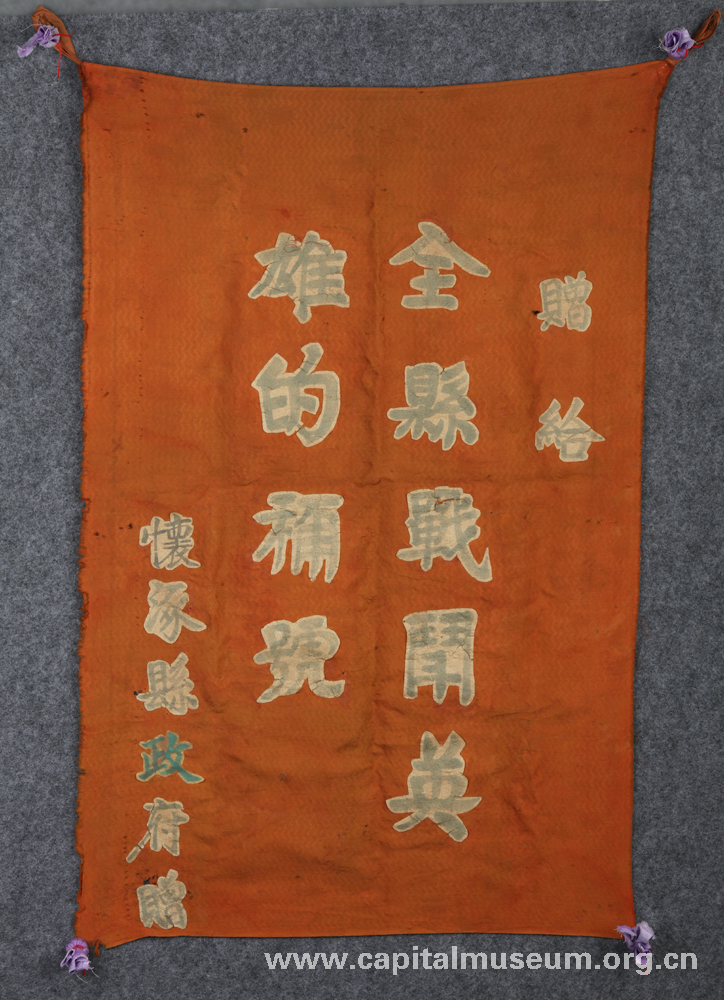 贈給
全縣戰鬪英
雄的稱號
懷涿縣政府贈
www.capitalmuseum.org.cn